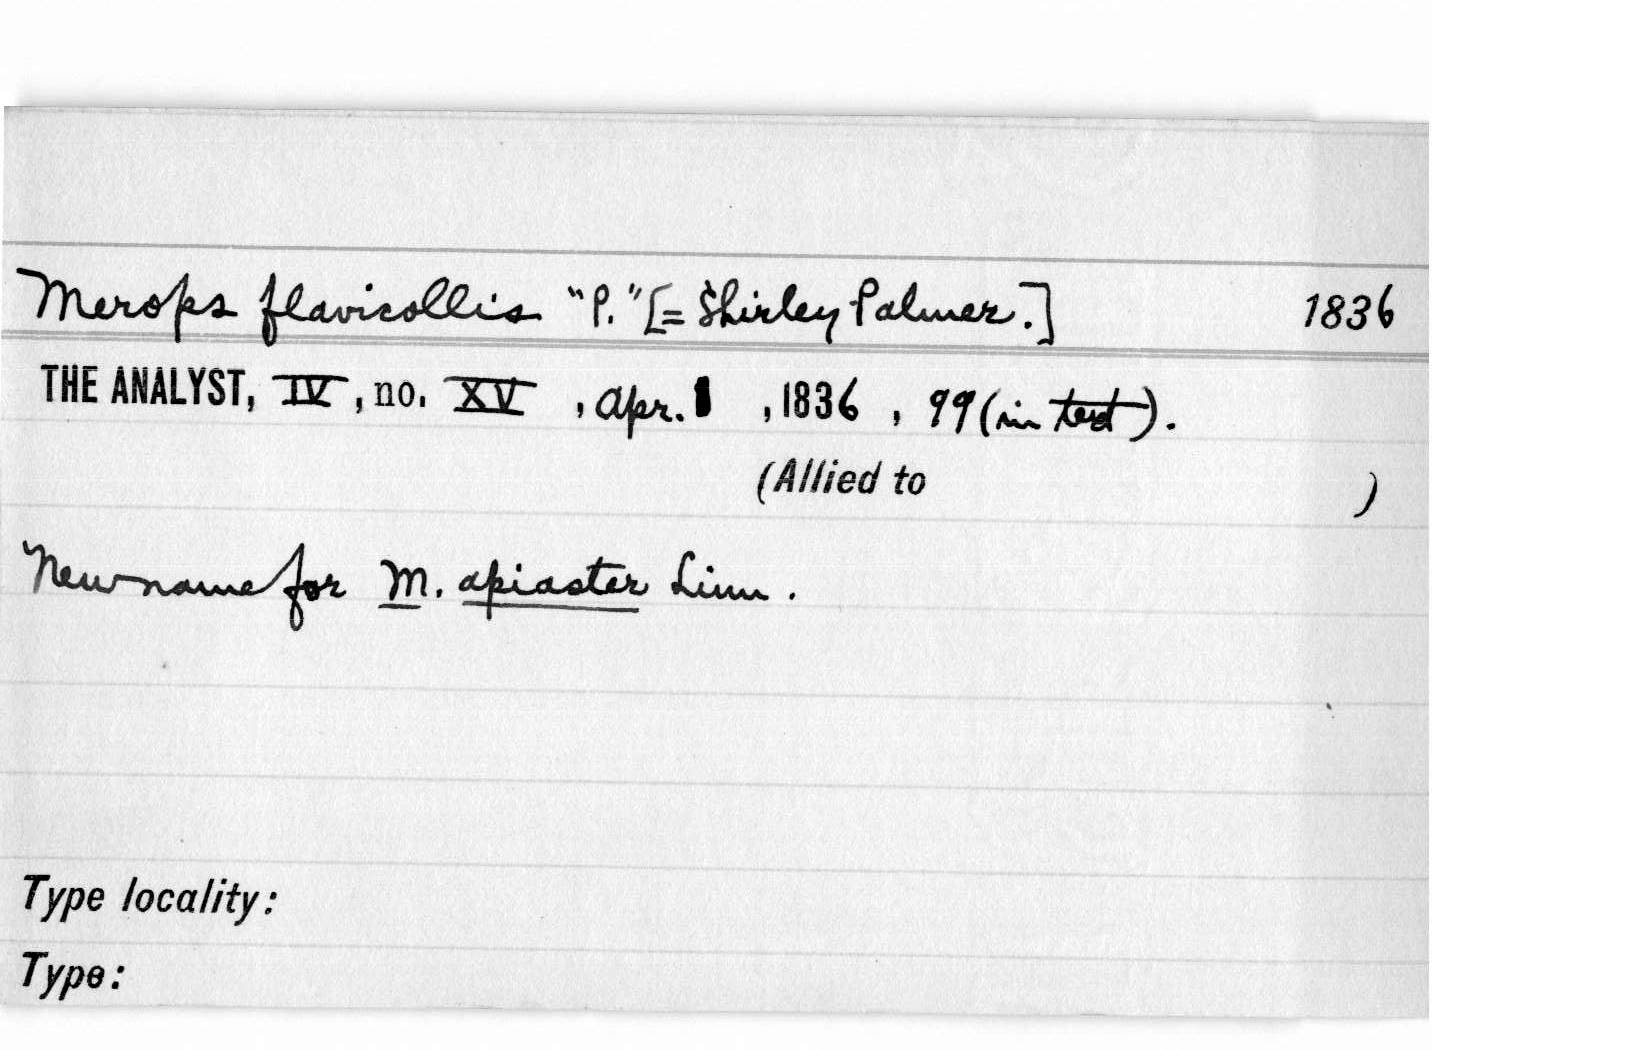 Merops flavicollis "P." [= Shirley Palmer.] 1836
THE ANALYST, IV, no. XV, Apr. 1, 1836, 99 (in text).
(Allied to )
New name for M. apiaster Linn.
Type locality:
Type: